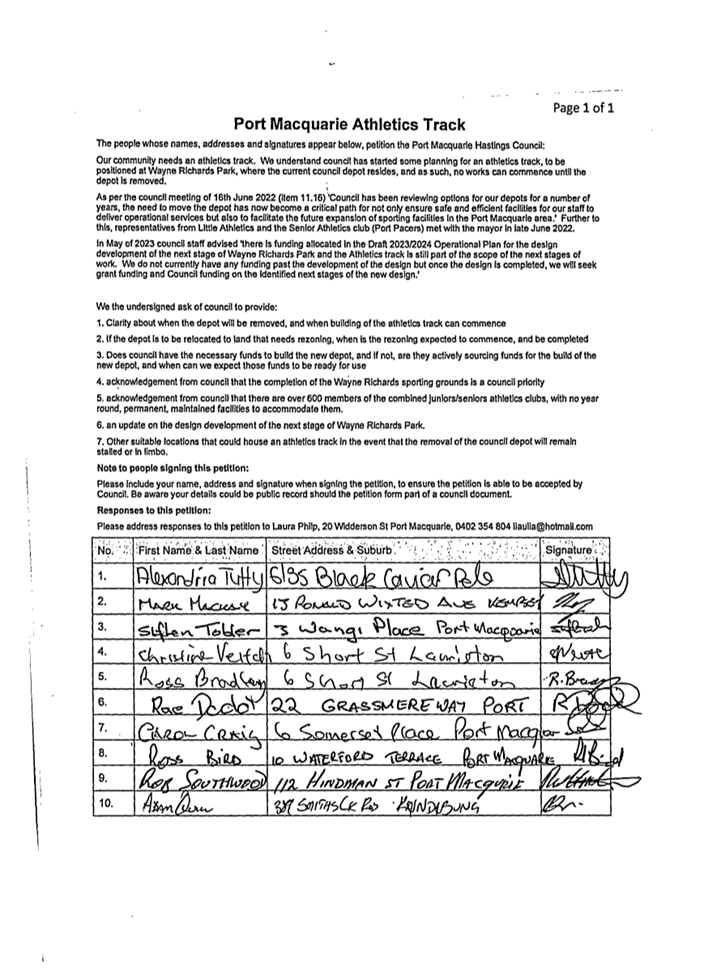 Page 1 of 1
Port Macquarie Athletics Track
The people whose names, addresses and signatures appear below, petition the Port Macquarie Hastings Council:
Our community needs an athletics track. We understand council has started some planning for an athletics track, to be
positioned at Wayne Richards Park, where the current council depot resides, and as such, no works can commence until the
depot is removed.
As per the council meeting of 16th June 2022 (item 11.16) 'Council has been reviewing options for our depots for a number of
years, the need to move the depot has now become a critical path for not only ensure safe and efficient facilities for our staff to
deliver operational services but also to facilitate the future expansion of sporting facilities in the Port Macquarie area.' Further to
this, representatives from Little Athletics and the Senior Athletics club (Port Pacers) met with the mayor in late June 2022.
In May of 2023 council staff advised 'there is funding allocated in the Draft 2023/2024 Operational Plan for the design
development of the next stage of Wayne Richards Park and the Athletics track is still part of the scope of the next stages of
work. We do not currently have any funding past the development of the design but once the design is completed, we will seek
grant funding and Council funding on the identified next stages of the new design.'
We the undersigned ask of council to provide:
1. Clarity about when the depot will be removed, and when building of the athletics track can commence
2. If the depot is to be relocated to land that needs rezoning, when is the rezoning expected to commence, and be completed
3. Does council have the necessary funds to build the new depot, and if not, are they actively sourcing funds for the build of the
new depot, and when can we expect those funds to be ready for use
4. acknowledgement from council that the completion of the Wayne Richards sporting grounds is a council priority
5. acknowledgement from council that there are over 600 members of the combined juniors/seniors athletics clubs, with no year
round, permanent, maintained facilities to accommodate them.
6. an update on the design development of the next stage of Wayne Richards Park.
7. Other suitable locations that could house an athletics track in the event that the removal of the council depot will remain
stalled or in limbo.
Note to people signing this petition:
Please include your name, address and signature when signing the petition, to ensure the petition is able to be accepted by
Council. Be aware your details could be public record should the petition form part of a council document.
Responses to this petition:
Please address responses to this petition to Laura Philp, 20 Widderson St Port Macquarie, 0402 354 804 liaulia@hotmail.com
No. First Name & Last Name Street Address & Suburb Signature
1. Alexandria Tutty 6/95 Black Caviar
2. MARK 15 RONALD WIXTED AVE KEMPSEY
3. Tobler 3 Wangi Place Port Macquarie
4. Christine Veitch 6 Short St Laurieton
5. Ross Bradley 6 Short St Laurieton R. Bradley
6. Rae 22 GRASSMERE WAY PORT
7. CAROL CRAIG 6 Somerset Place Port Macquar
8. ROSS BIRD 10 WATERFORD TERRACE PORT MACQUARIE
9. ROB SOUTHWOOD 112 HINDMAN ST PORT MACQUIRE
10. Adam SMITHS CK RD KUNDABUNG